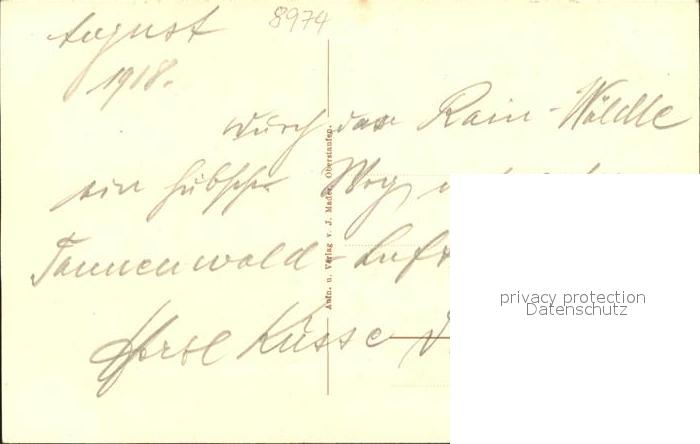 August 8974
1918.
durch das Rain-Wäldle
ein hübscher Weg
Tannenwald-Luft
Küsse
Aufn. u. Verlag v. J. Mader, Oberstaufen.
privacy protection
Datenschutz